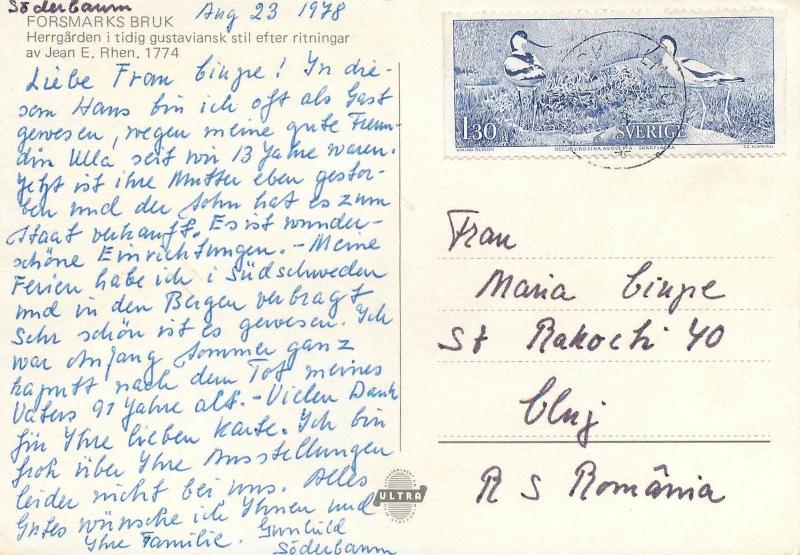 Söderbaum
Aug 23 1978
FORSMARKS BRUK
Herrgården i tidig gustaviansk stil efter ritningar
av Jean E. Rhen. 1774
Liebe Frau Cinpe! In die-
sem Haus bin ich oft als Gast
gewesen, wegen meine gute Freun-
din Ulla seit wir 13 Jahre waren.
Jetzt ist ihre Mutter eben gestor-
ben und der Sohn hat es zum
Staat verkauft. Es ist wunder-
schöne Einrichtungen. - Meine
Ferien habe ich i Südschweden
und in den Bergen verbragt
Sehr schön ist es gewesen. Ich
war Anfang Sommer ganz
kaputt nach dem Tot meines
Vaters 91 Jahre alt. - Vielen Dank
für Ihre lieben Karte. Ich bin
froh über Ihre Ausstellungen
leider nicht bei uns. Alles
Gutes wünsche ich Ihnen und
Ihre Familie. Gunhild
Söderbaum
ULTRA
1.30 SVERIGE
RECURVIROSTRA AVOSETTA SKÄRFLÄCKA
Frau
Maria Cinpe
St Rakochi 40
Cluj
R S România